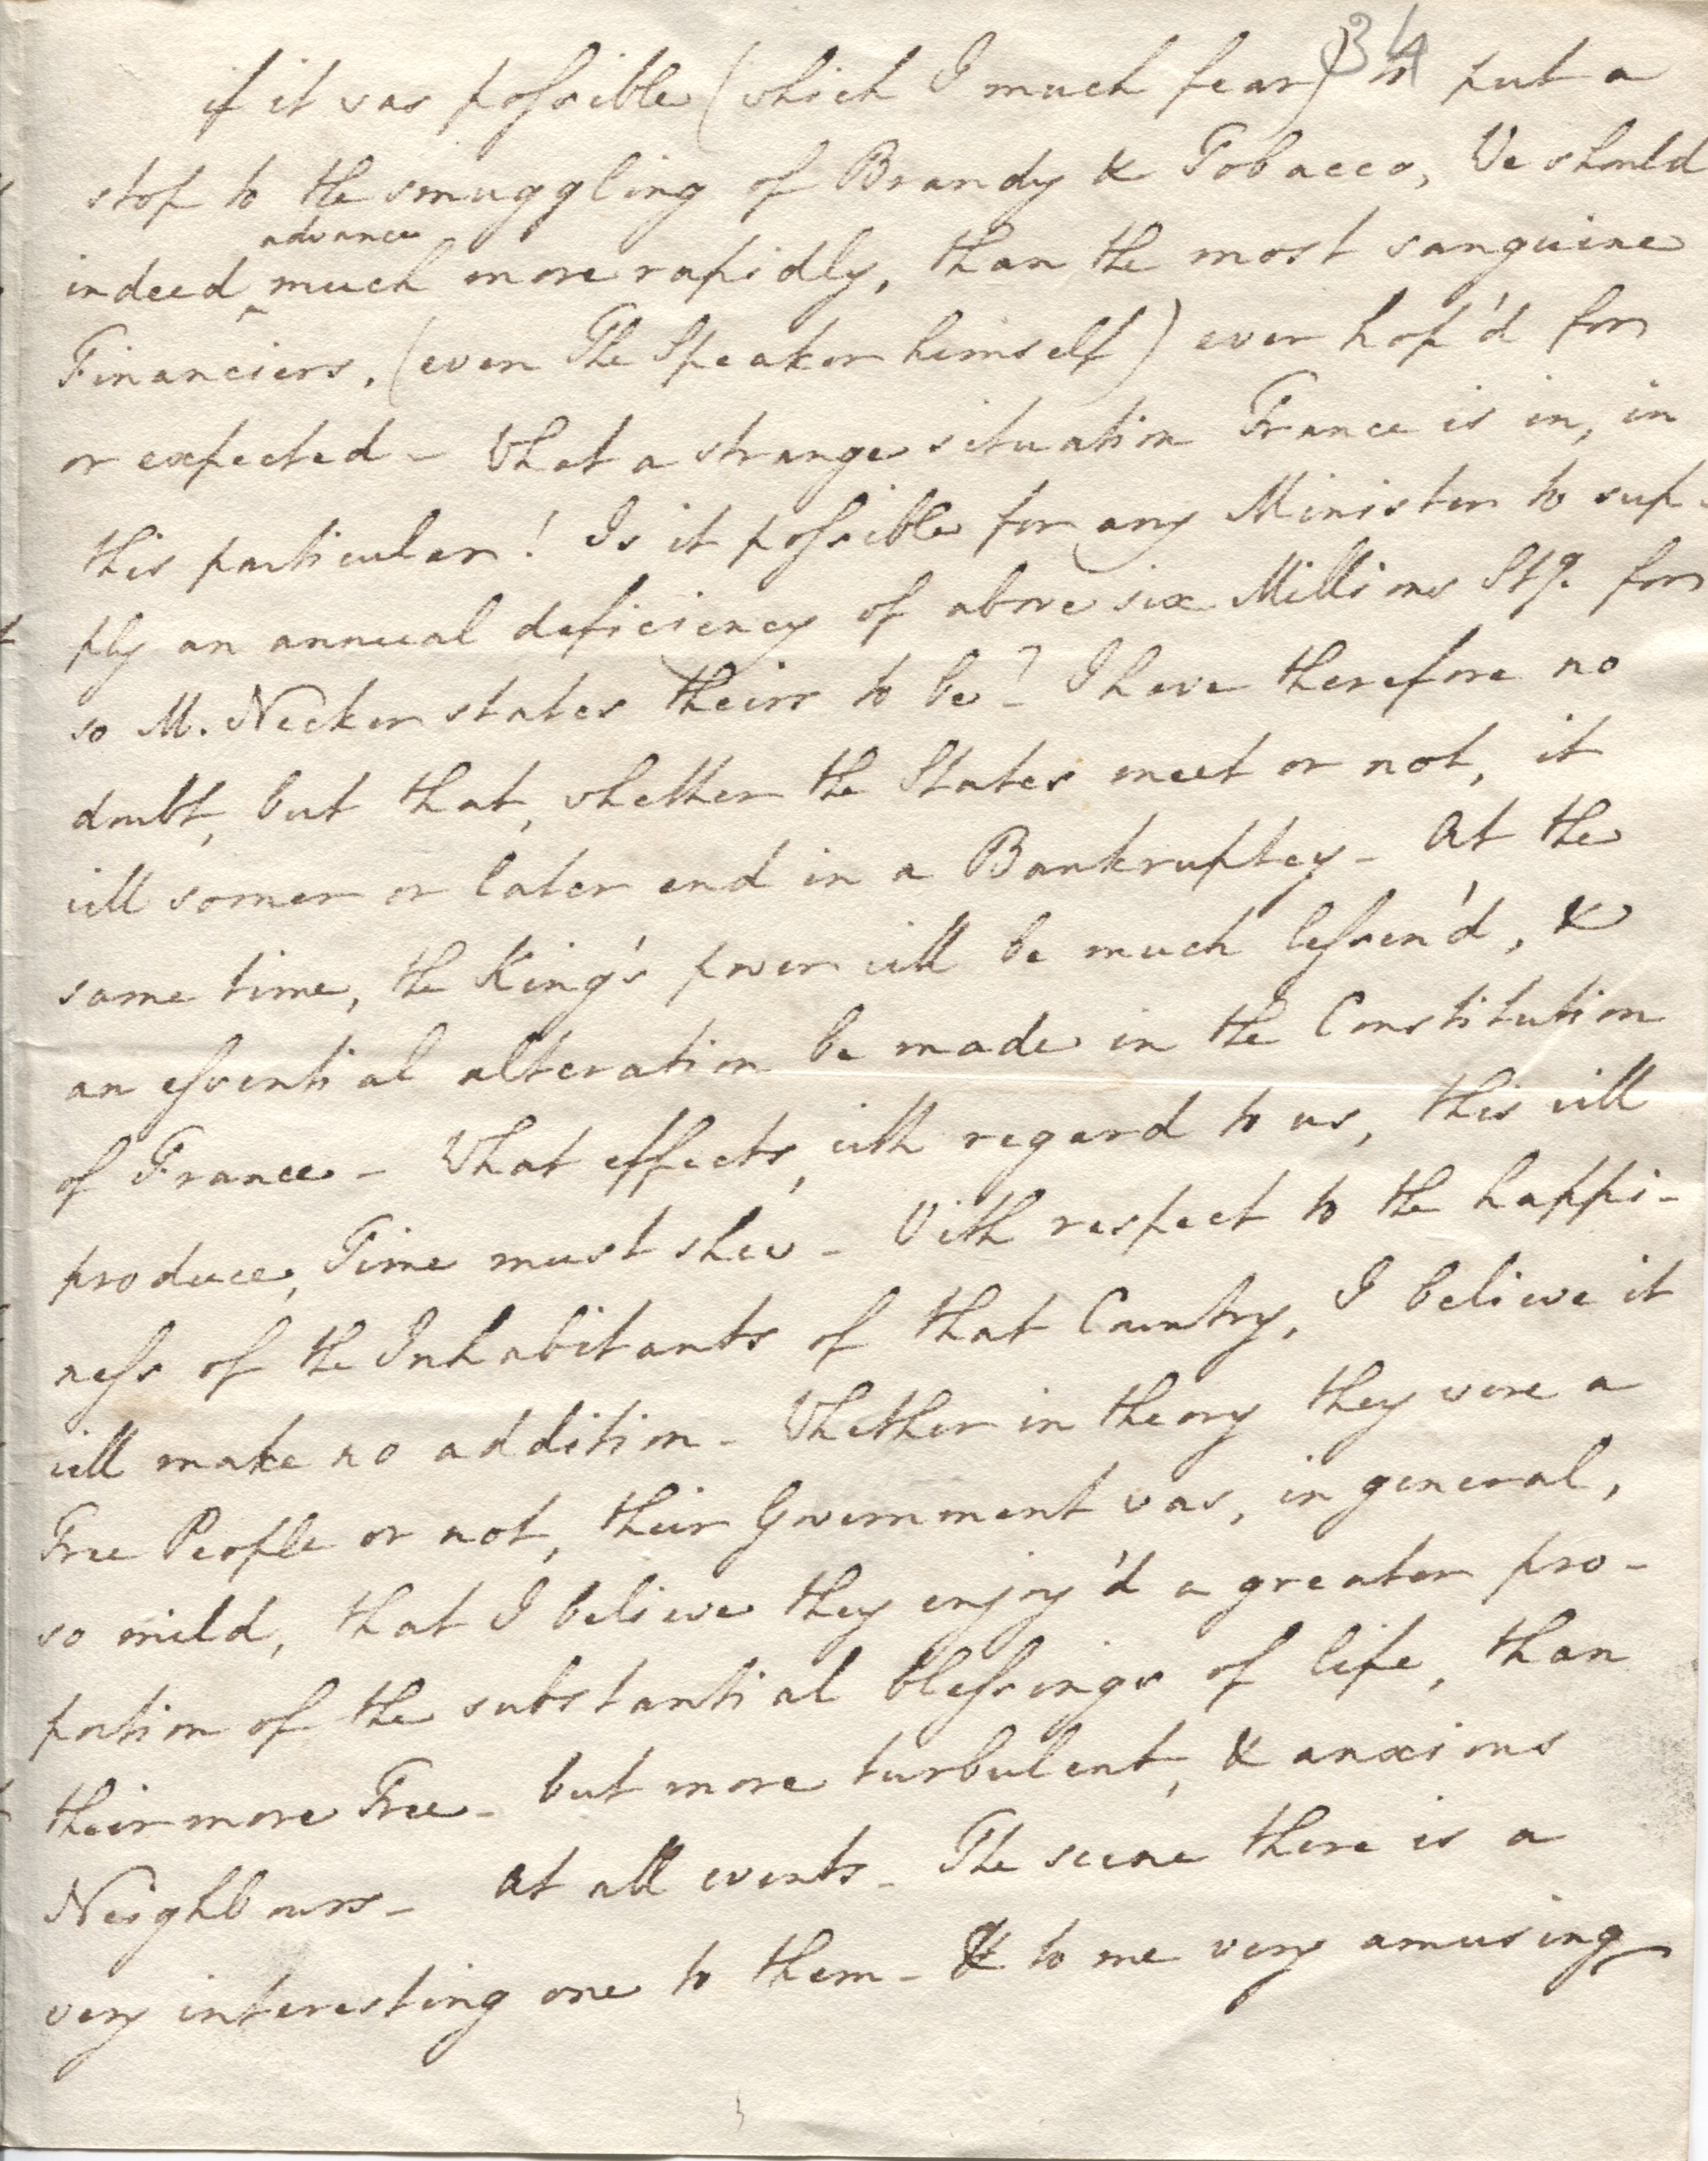 34
if it was possible (which I much fear) to put a
stop to the smuggling of Brandy & Tobacco, We should
advance
indeed ^ much more rapidly, than the most sanguine
Financiers, (even The Speaker himself) ever hop'd for
or expected - What a strange situation France is in, in
this particular! Is it possible for any Minister to sup-
ply an annual deficiency of above six Millions Stg. for
so M. Necker states theirs to be? - I have therefore no
doubt, but that, whether the States meet or not, it
will sooner or later end in a Bankruptcy - At the
same time, the King's power will be much lessen'd, &
an essential alteration be made in the Constitution
of France - What effects, with regard to us, this will
produce, Time must shew - With respect to the happi-
ness of the Inhabitants of that Country, I believe it
will make no addition - Whether in theory they were a
Free People or not, their Government was, in general,
so mild, that I believe they enjoy'd a greater pro-
portion of the substantial blessings of life, than
their more Free - but more turbulent, & anxious
Neighbours - At all events - The scene there is a
very interesting one to them - & to me very amusing